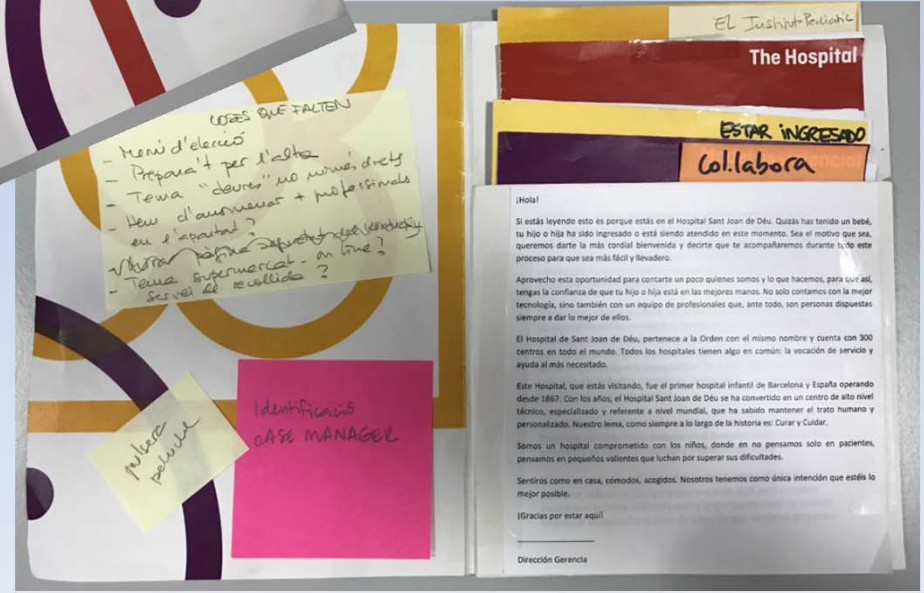 COSES QUE FALTEN
- Menú d'elecció
- Prepara't per l'alta
- Tema "deures" no només drets
- Hem d'anomenar + professionals
en l'apartat?
- Tema supermercat - on line!
Servei de recollida?
pulsera
peluche
Identificació
CASE MANAGER
EL Institut Pediatric
The Hospital
ESTAR INGRESADO
Col.labora
¡Hola!
Si estás leyendo esto es porque estás en el Hospital Sant Joan de Déu. Quizás has tenido un bebé,
tu hijo o hija ha sido ingresado o está siendo atendido en este momento. Sea el motivo que sea,
queremos darte la más cordial bienvenida y decirte que te acompañaremos durante todo este
proceso para que sea más fácil y llevadero.
Aprovecho esta oportunidad para contarte un poco quienes somos y lo que hacemos, para que así,
tengas la confianza de que tu hijo o hija está en las mejores manos. No solo contamos con la mejor
tecnología, sino también con un equipo de profesionales que, ante todo, son personas dispuestas
siempre a dar lo mejor de ellos.
El Hospital de Sant Joan de Déu, pertenece a la Orden con el mismo nombre y cuenta con 300
centros en todo el mundo. Todos los hospitales tienen algo en común: la vocación de servicio y
ayuda al más necesitado.
Este Hospital, que estás visitando, fue el primer hospital infantil de Barcelona y España operando
desde 1867. Con los años, el Hospital Sant Joan de Déu se ha convertido en un centro de alto nivel
técnico, especializado y referente a nivel mundial, que ha sabido mantener el trato humano y
personalizado. Nuestro lema, como siempre a lo largo de la historia es: Curar y Cuidar.
Somos un hospital comprometido con los niños, donde en no pensamos solo en pacientes,
pensamos en pequeños valientes que luchan por superar sus dificultades.
Sentiros como en casa, cómodos, acogidos. Nosotros tenemos como única intención que estéis lo
mejor posible.
¡Gracias por estar aquí!
Dirección Gerencia